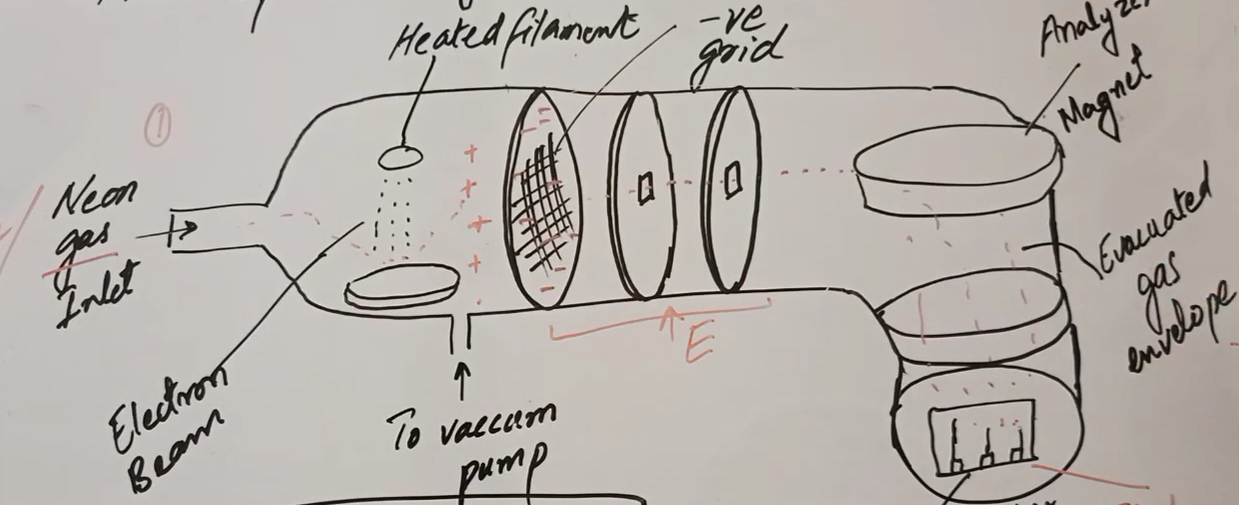 Heated filament
-ve
grid
Analyzer
Magnet
①
Neon
gas
Inlet
+
+
+
+
E
Evacuated
gas
envelope
Electron
Beam
To vaccum
pump